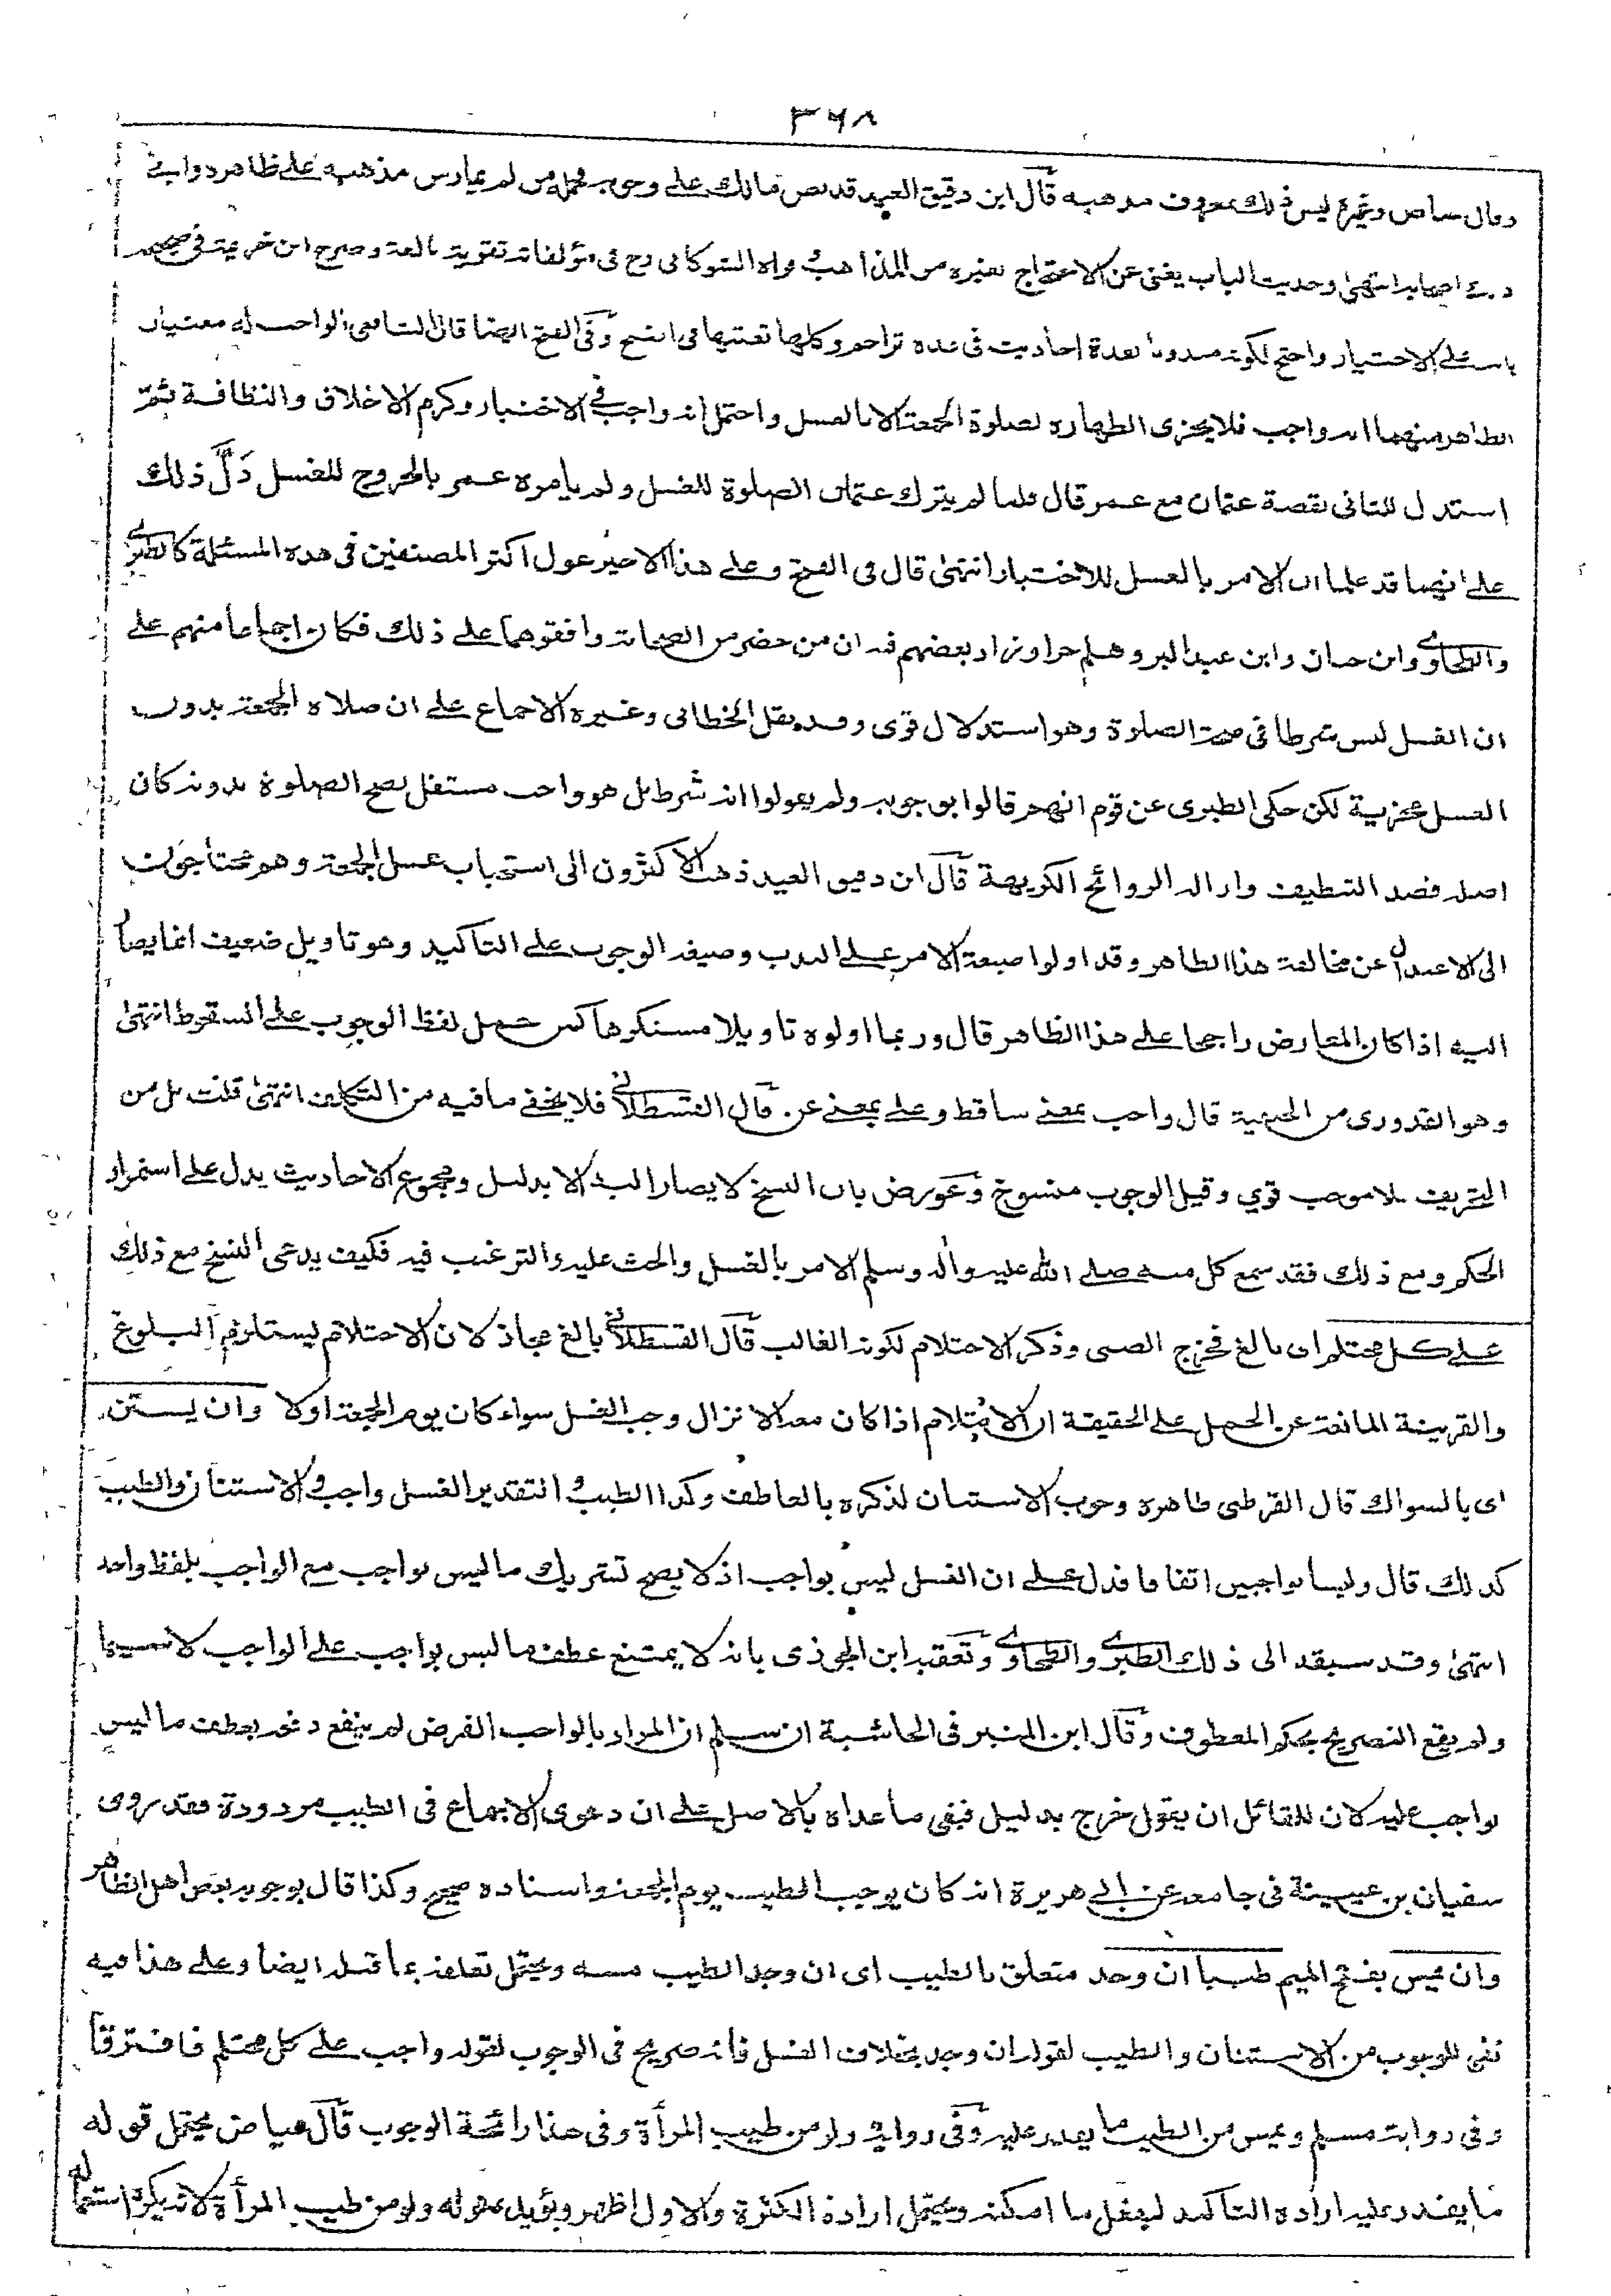 ٣٦٨
وقال عياض وغيره ليس ذلك بمعروف مذهبه قال ابن دقيق العيد قد نص مالك على وجوبه فحمله من لم يمارس مذهبه على ظاهره وابى
ذلك اصحابه انتهى وحديث الباب يغنى عن الاحتجاج بغيره من المذاهب الشوكانى رح فى مؤلفاته تقوية بالغة وصرح ابن خزيمة فى صحيحه
بانه على الاختيار واحتج لكونه مندوبا بعدة احاديث فى عدة تراجم وكلها تعقبتها فى الفتح وفى الفتح ايضا قال الشافعى الواجب له معنيان
الظاهر منهما انه واجب فلا يجزى الطهارة لصلوة الجمعة الا بالغسل واحتمل انه واجب فى الاختيار وكرم الاخلاق والنظافة ثم
استدل للثانى بقصة عثمان مع عمر قال فلما لم يترك عثمان الصلوة للغسل ولم يأمره عمر بالخروج للغسل دل ذلك
على انهما قد علما ان الامر بالغسل للاختيار انتهى قال فى الفتح وعلى هذا الاخير عول اكثر المصنفين فى هذه المسئلة كالطبرى
والطحاوى وابن حبان وابن عبد البر وهلم جرا وزاد بعضهم فيه ان من حضر من الصحابة وافقوهما على ذلك فكان اجماعا منهم على
ان الغسل ليس شرطا فى صحة الصلوة وهو استدلال قوى وقد نقل الخطابى وغيره الاجماع على ان صلاة الجمعة بدون
الغسل مجزية لكن حكى الطبرى عن قوم انهم قالوا بوجوبه ولم يقولوا انه شرط بل هو واجب مستقل تصح الصلوة بدونه كان
اصله قصد التنظيف وازالة الروائح الكريهة قال ابن دقيق العيد ذهب الاكثرون الى استحباب غسل الجمعة وهم محتاجون
الى الاعتذار عن مخالفة هذا الظاهر وقد اولوا صيغة الامر على الندب وصيغة الوجوب على التاكيد وهو تاويل ضعيف انما يصار
اليه اذا كان المعارض راجحا على هذا الظاهر قال وربما اولوه تاويلا مستكرها كمن حمل لفظ الوجوب على السقوط انتهى
وهو القدورى من الحنفية قال واجب بمعنى ساقط وعلى بمعنى عن قال القسطلانى فلا يخفى ما فيه من التكلف انتهى قلت بل من
التحريف بلا موجب قوي وقيل الوجوب منسوخ وعورض بان النسخ لا يصار اليه الا بدليل ومجموع الاحاديث يدل على استمرار
الحكم ومع ذلك فقد سمع كل منه صلى الله عليه واله وسلم الامر بالغسل والحث عليه والترغيب فيه فكيف يدعى النسخ مع ذلك
على كل محتلم اى بالغ فخرج الصبى وذكر الاحتلام لكونه الغالب قال القسطلانى بالغ مجاز لان الاحتلام يستلزم البلوغ
والقرينة المانعة عن الحمل على الحقيقة ان الاحتلام اذا كان معه الانزال وجب الغسل سواء كان يوم الجمعة اولا وان يستن
اى بالسواك قال القرطبى ظاهره وجوب الاستنان لذكره بالعاطف وكذا الطيب والتقدير الغسل واجب والاستنان والطيب
كذلك قال وليسا بواجبين اتفاقا فدل على ان الغسل ليس بواجب اذ لا يصح تشريك ما ليس بواجب مع الواجب بلفظ واحد
انتهى وقد سبقه الى ذلك الطبرى والطحاوى وتعقبه ابن الجوزى بانه لا يمتنع عطف ما ليس بواجب على الواجب لا سيما
ولم يقع التصريح بحكم المعطوف وقال ابن المنير فى الحاشية ان سلم ان المراد بالواجب الفرض لم ينفع دفعه بعطف ما ليس
بواجب عليه لان للقائل ان يقول خرج بدليل فبقى ما عداه بالاصل على ان دعوى الاجماع فى الطيب مردودة فقد روى
سفيان بن عيينة فى جامعه عن ابى هريرة انه كان يوجب الطيب يوم الجمعة واسناده صحيح وكذا قال بوجوبه بعض اهل الظاهر
وان يمس بفتح الميم طيبا ان وجد متعلق بالطيب اى ان وجد الطيب مسه ويحتمل تعلقه بما قبله ايضا وعلى هذا فيه
نفى للوجوب من الاستنان والطيب لقوله ان وجد بخلاف الغسل فانه صريح فى الوجوب لقوله واجب على كل محتلم فافترقا
وفى رواية مسلم ويمس من الطيب ما يقدر عليه وفى رواية ولو من طيب المرأة وفى هذا رائحة الوجوب قال عياض يحتمل قوله
ما يقدر عليه ارادة التاكيد ليفعل ما امكنه ويحتمل ارادة الكثرة والاول اظهر ويؤيده قوله ولو من طيب المرأة لانه يكره استعماله